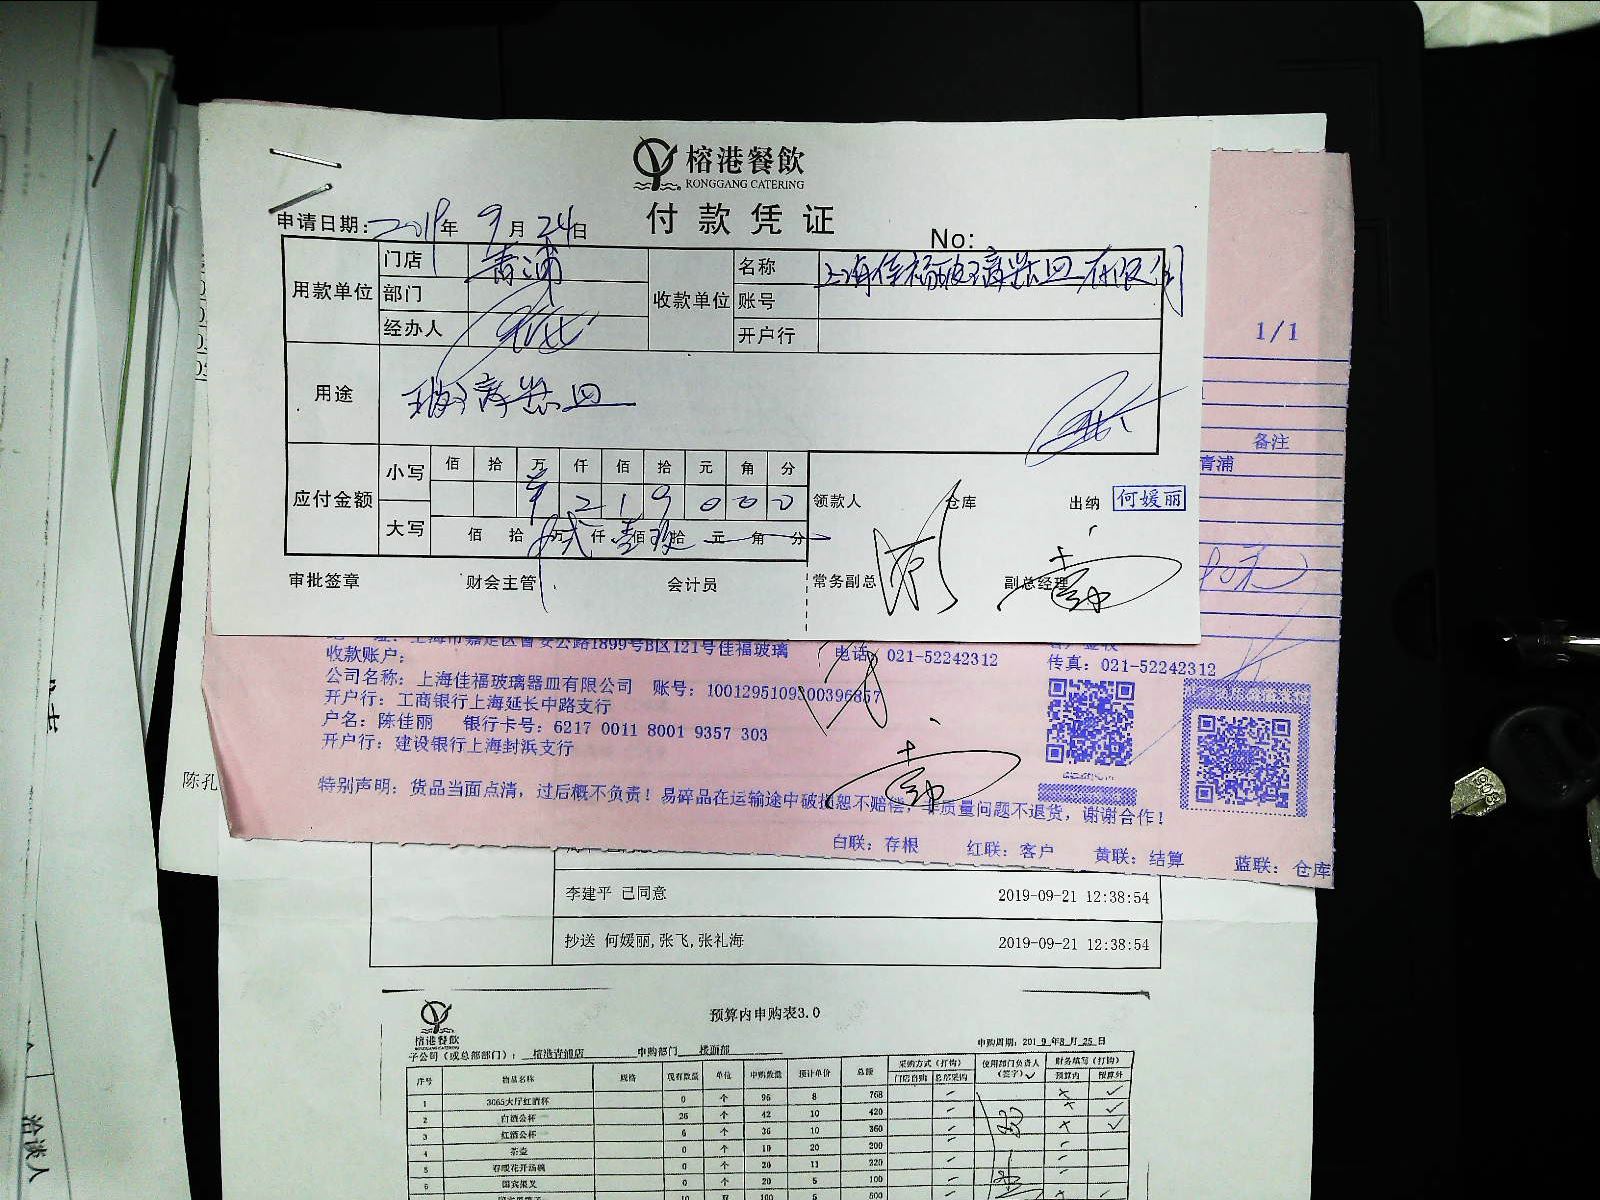 榕港餐飲
RONGGANG CATERING
付款凭证
申请日期: 2019年 9月 24日
No:
用款单位 门店 青浦
部门
经办人
收款单位 名称 上海佳福玻璃器皿有限公司
账号
开户行
用途 玻璃器皿
1/1
备注
青浦
应付金额 小写 佰 拾 万 仟 佰 拾 元 角 分
¥ 2 1 9 0 0 0
大写 佰 拾 万 贰仟 壹佰 玖拾 元 角 分
领款人 仓库 出纳 何媛丽
审批签章 财会主管 会计员 常务副总 副总经理
地 址: 上海市嘉定区曹安公路1899号B区121号佳福玻璃 电话: 021-52242312 传真: 021-52242312
收款账户:
公司名称: 上海佳福玻璃器皿有限公司 账号: 1001295109300396857
开户行: 工商银行上海延长中路支行
户名: 陈佳丽 银行卡号: 6217 0011 8001 9357 303
开户行: 建设银行上海封浜支行
特别声明: 货品当面点清, 过后概不负责! 易碎品在运输途中破损恕不赔偿, 非质量问题不退货, 谢谢合作!
白联: 存根 红联: 客户 黄联: 结算 蓝联: 仓库
陈孔
李建平 已同意 2019-09-21 12:38:54
抄送 何媛丽,张飞,张礼海 2019-09-21 12:38:54
榕港餐飲
预算内申购表3.0
子公司（或总部部门）: 榕港青浦店 申购部门 楼面部 申购周期: 2019年8月25日
序号 物品名称 规格 现有数量 单位 申购数量 预计单价 总额 采购方式（打钩） 使用部门负责人（签字） 财务填写（打钩）
门店自购 总部采购 预算内 预算外
1 3065大厅红酒杯 0 个 96 8 768
2 白酒公杯 26 个 42 10 420
3 红酒公杯 6 个 36 10 360
4 茶壶 0 个 10 20 200
5 春暖花开汤碗 0 个 20 11 220
6 国宾果叉 0 个 20 5 100
10 双 100 5 500